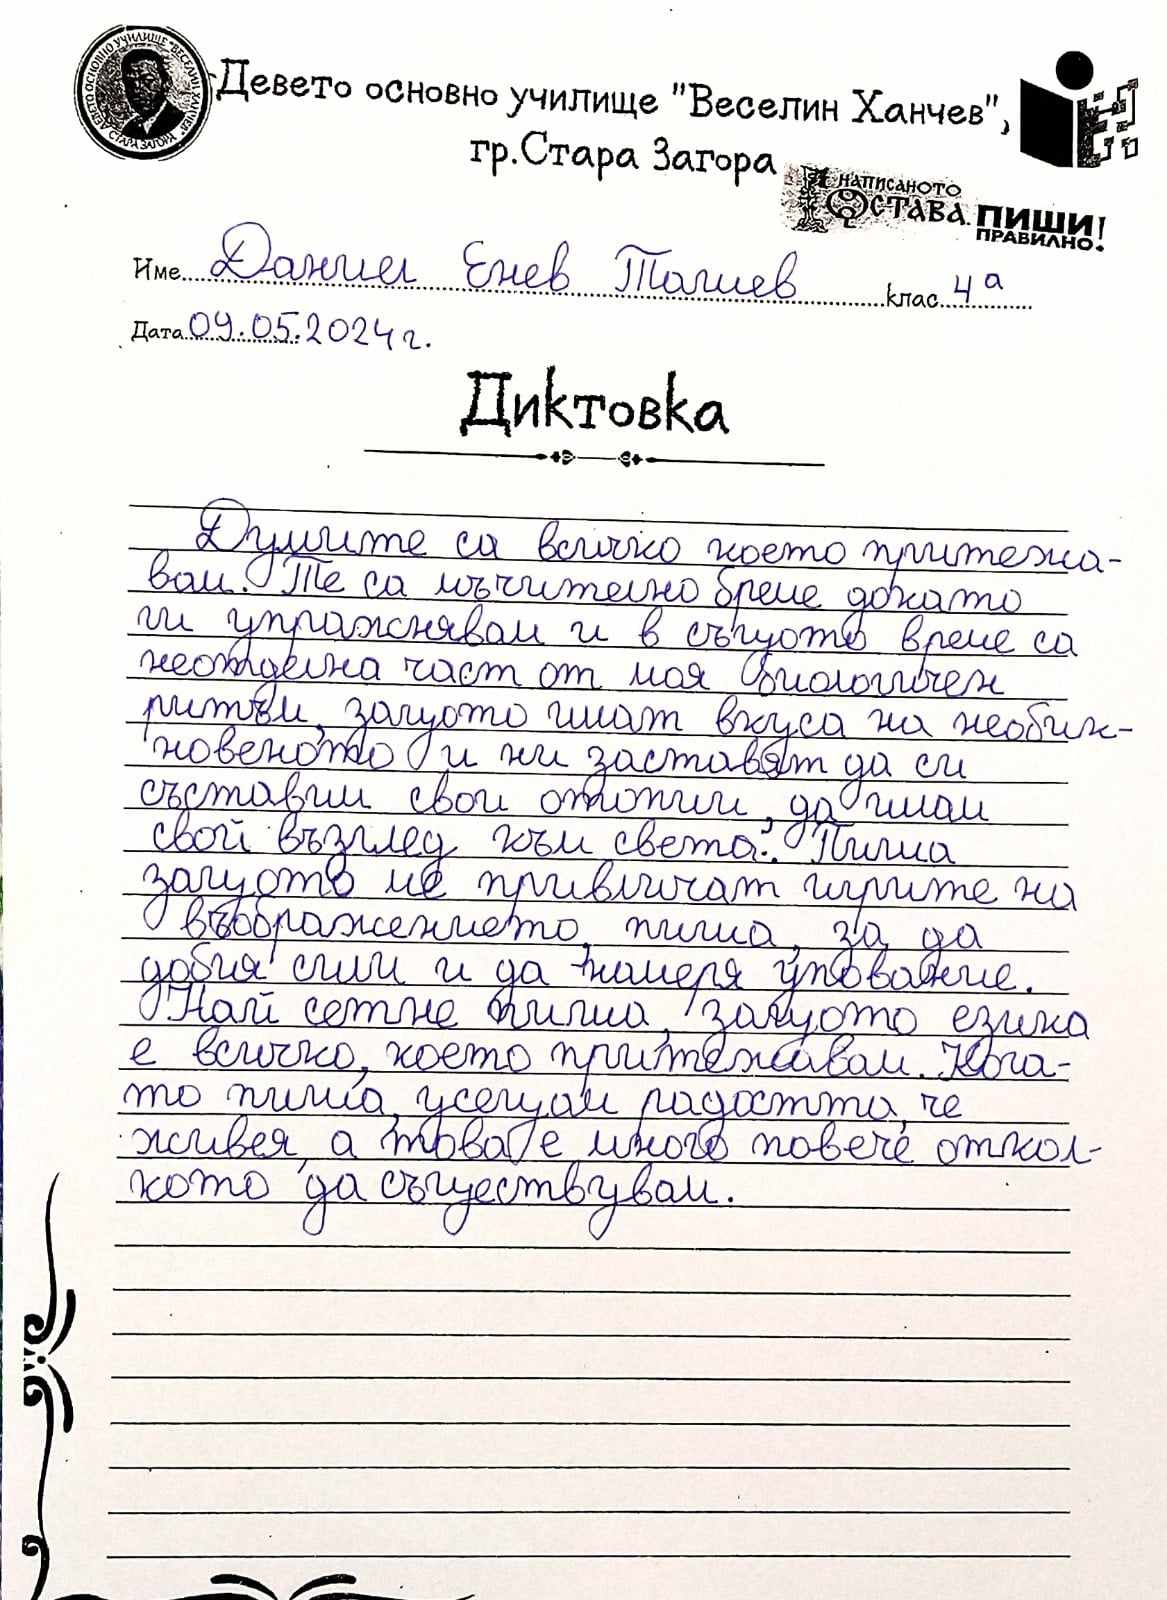 ДЕВЕТО ОСНОВНО УЧИЛИЩЕ "ВЕСЕЛИН ХАНЧЕВ"
СТАРА ЗАГОРА
Девето основно училище "Веселин Ханчев",
гр.Стара Загора
НАПИСАНОТО
ОСТАВА.
ПИШИ
ПРАВИЛНО!
Име Даниел Енев Ташев клас 4а
Дата 09.05.2024г.
Диктовка
Думите са всичко което притежа-
вам. Те са мъчително бреме докато
ги упражнявам и в същото време са
неотделна част от моя биологичен
ритъм, защото имат вкуса на необик-
новеното и ни заставят да си
съставим свои отопии, да имам
свой възглед към света. Пиша
защото ме привличат игрите на
въображението, пиша, за да
добия сили и да намеря упование.
Най сетне пиша, защото езика
е всичко, което притежавам. Кога-
то пиша, усещам радостта, че
живея, а това е много повече откол-
кото да съществувам.